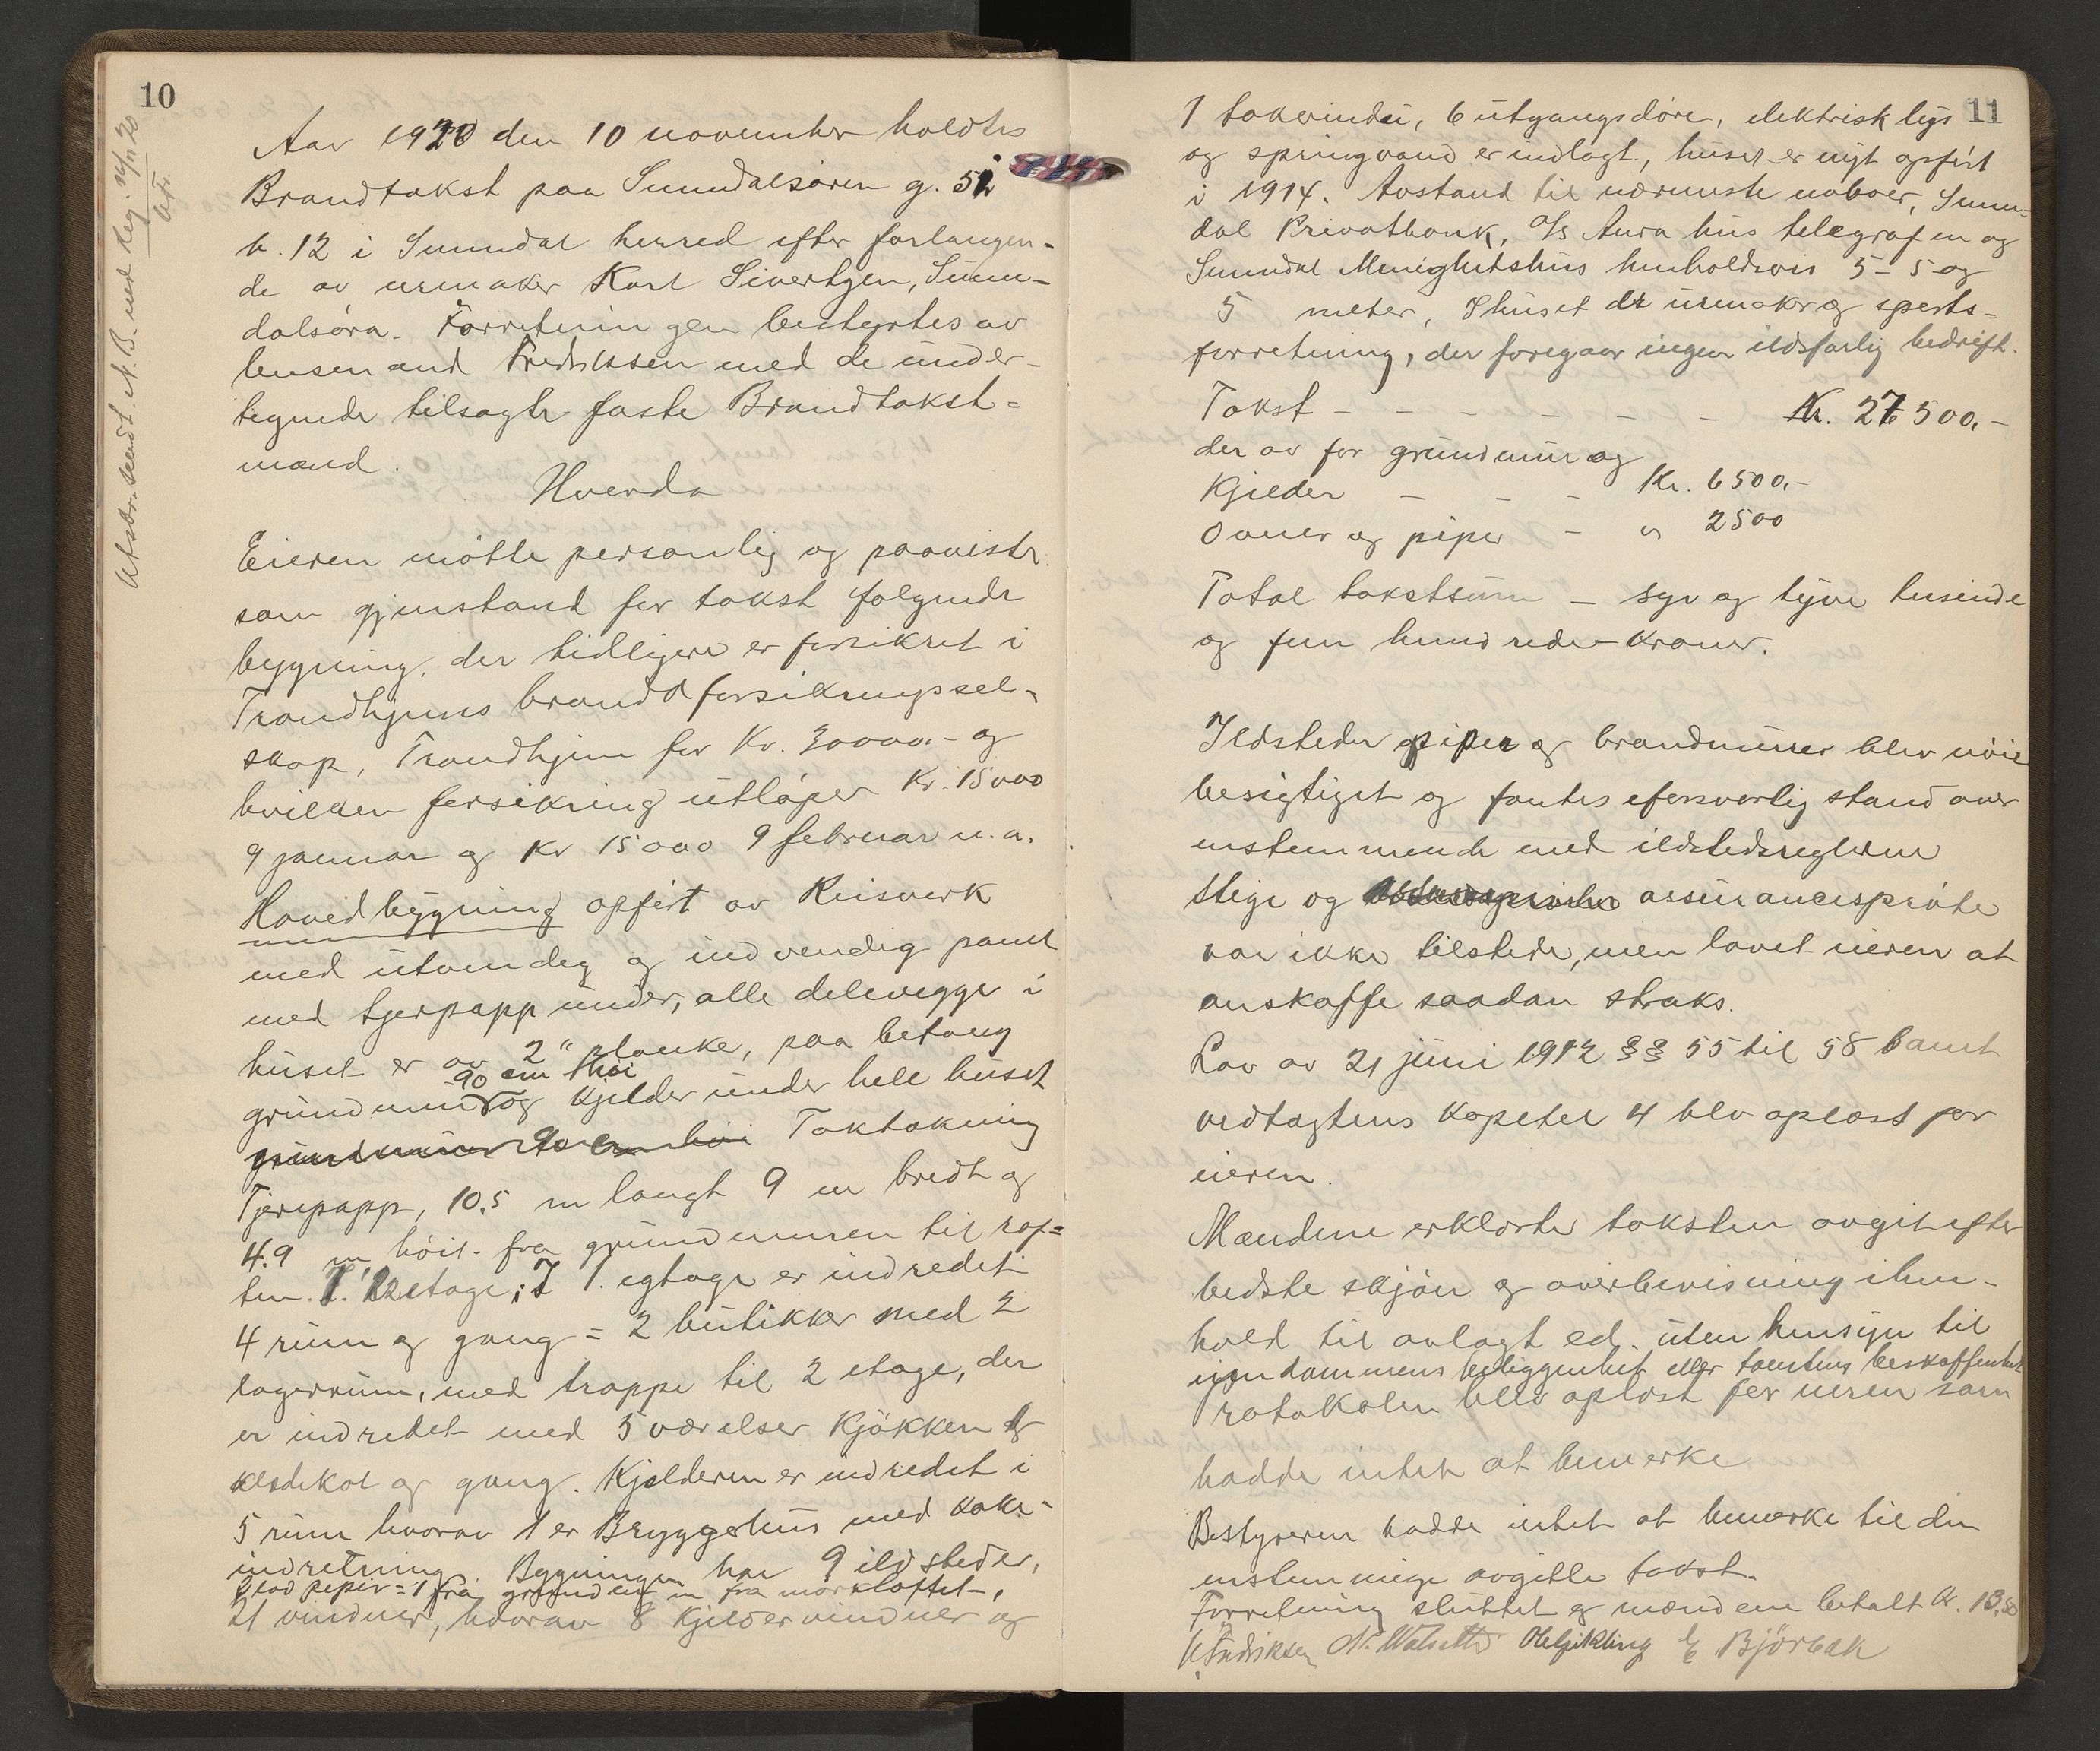 10
Utskr. sendt N. B. med reg. 16/11 20
Aar 1920 den 10 november holdtes
Brandtakst paa Sunndalsøren g. 52
b. 12 i Sunndal herred efter forlangen-
de av urmaker Karl Sivertsen, Sunn-
dalsøra. Forretningen bestyrtes av
lensmand Fredriksen med de under-
tegnede tilsagte faste Brandtakst=
mænd.
Hvorda
Eieren møtte personlig og paaviste
som gjenstand for takst følgende
bygning, der tidligere er forsikret i
Trondhjems brandforsikringssel-
skap, Trondhjem for Kr. 30000.- og
hvilken forsikring utløper Kr. 15000
9 januar og Kr 15000 9 februar n. a.
Hovedbygning opført av Reisverk
med utvendig og indvendig panel
med tjerpapp under, alle delevegge i
huset er av 2" planke, paa betong
90 cm høi
grundmur og Kjelder under hele huset
grundmur 90 cm høi Taktækning
Tjerepapp, 10,5 m langt 9 m bredt og
4.9 m høit fra grundmuren til raf=
ten. 2 etage; I 1. etage er indredet
4 rum og gang = 2 butikker med 2
lagerrum, med trappe til 2 etage, der
er indredet med 5 værelser Kjøkken og
klædekot og gang. Kjelderen er indredet i
5 rum hvorav 1 er Bryggerhus med koke-
indretning. Bygningen har 9 ildsteder,
2 piper = 1 fra grunden fra mørkloftet,
21 vinduer, hvorav 8 Kjeldervinduer og
11
1 takvindu, 6 utgangsdøre, elektrisk lys
og springvand er indlagt, huset er nyt opført
i 1914. Avstand til nærmeste naboer, Sunn-
dal Privatbank, A/S Aura hus telegrafen og
Sunndal Menighetshus henholdsvis 5 - 5 og
5 meter, I huset er urmaker og sports=
forretning, der foregaar ingen ildsfarlig bedrift.
Takst - - - - - - Kr. 27500.-
der av for grundmur og
Kjelder - - - Kr. 6500.-
Ovner og piper - " 2500
Total takstsum - syv og tyve tusinde
og fem hundrede Kroner.
Ildsteder piper og brandmurer blev nøie
besigtiget og fantes forsvarlig stand over
enstemmende med ildstedsreglerne
Stige og assurancesprøite
var ikke tilstede, men lovet eieren at
anskaffe saadan straks.
Lov av 21 juni 1912 §§ 55 til 58 samt
vedtægtens Kapetel 4 blev oplæst for
eieren.
Mændene erklærte taksten avgit efter
bedste skjøn og overbevisning ihen-
hold til avlagt ed uten hensyn til
eiendommens beliggenhet eller tomtens beskaffenhet
Protokolen blev oplæst for eieren som
hadde intet at bemerke
Bestyreren hadde intet at bemerke til den
enstemmige avgitte takst.
Forretning sluttet og mændene betalt Kr. 13,50
Fredriksen Ole Fikling E Bjørbak